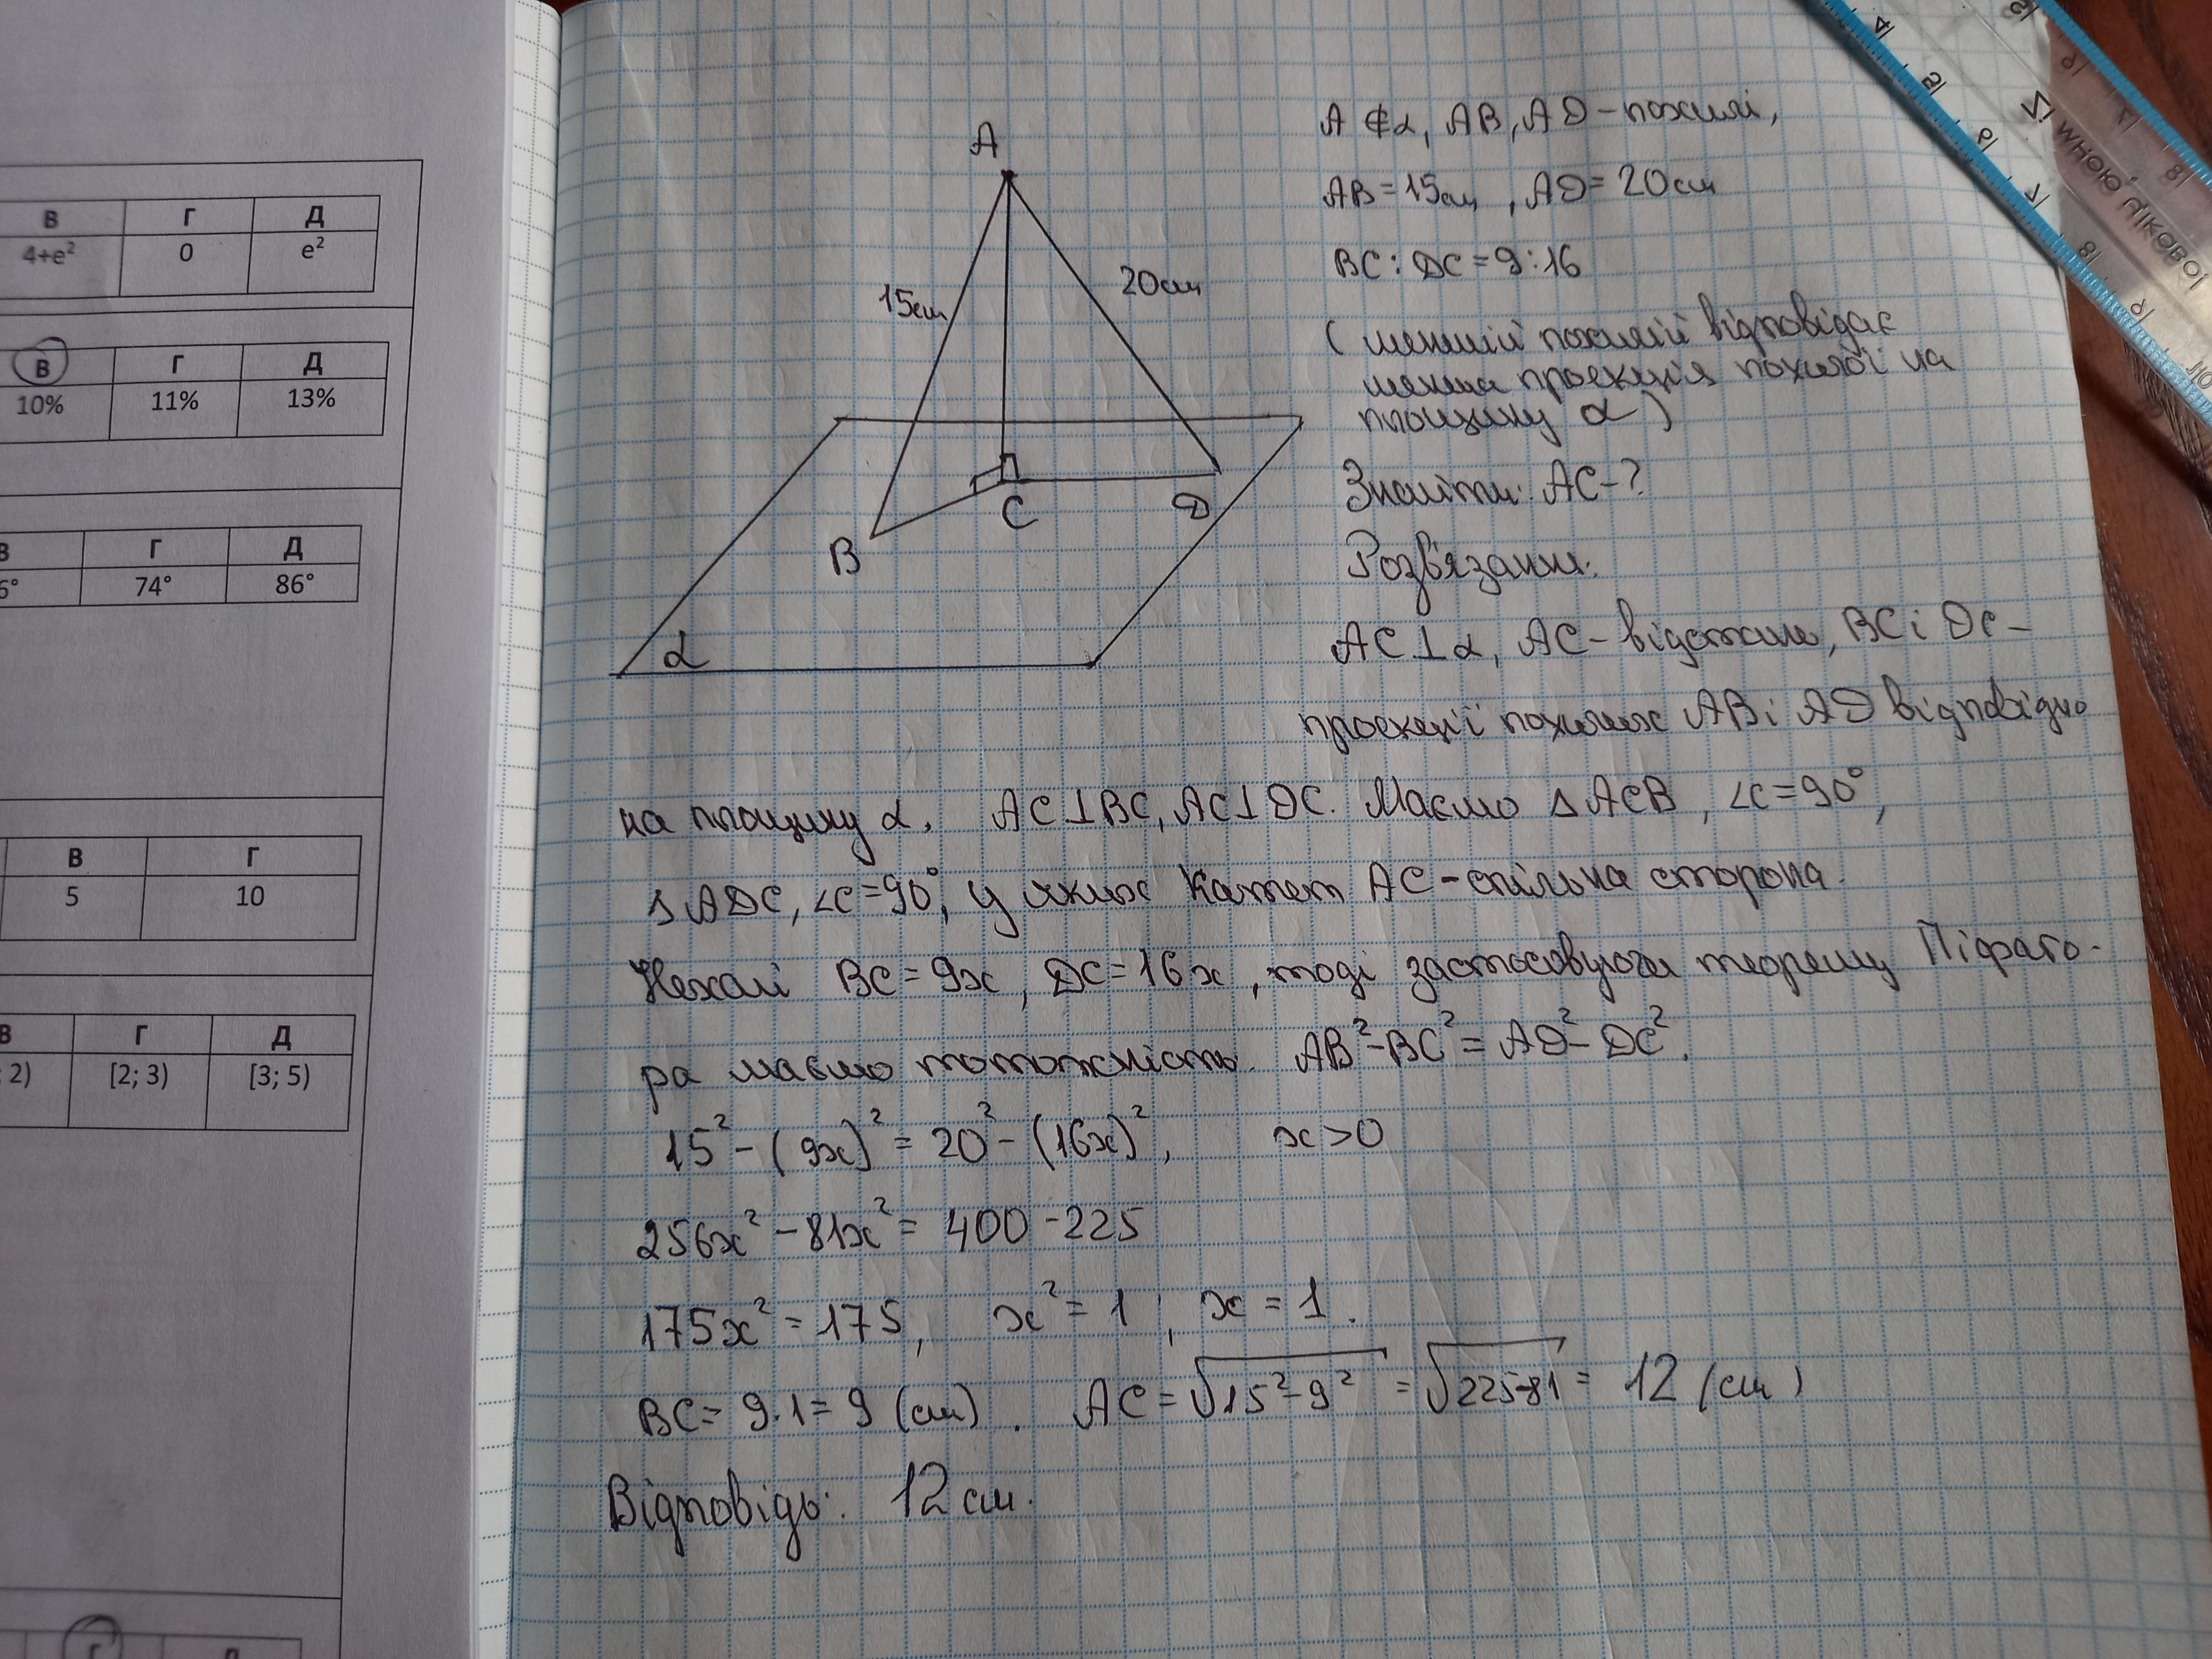 В Г Д
4+e² 0 e²
В Г Д
10% 11% 13%
В Г Д
6° 74° 86°
В Г
5 10
В Г Д
; 2) [2; 3) [3; 5)
Г Д
A
15см
20см
B
C
D
α
A ∉ α, AB, AD - похилі,
AB = 15см, AD = 20см
BC : DC = 9 : 16
( меншій похилій відповідає
менша проекція похилої на
площину α )
Знайти: AC - ?
Розв'язання:
AC ⊥ α, AC - відстань, BC і DC -
проекції похилих AB і AD відповідно
на площину α. AC ⊥ BC, AC ⊥ DC. Маємо Δ ACB, ∠C = 90°,
Δ ADC, ∠C = 90°, у яких катет AC - спільна сторона.
Нехай BC = 9x, DC = 16x, тоді застосовуючи теорему Піфаго-
ра маємо тотожність: AB² - BC² = AD² - DC².
15² - (9x)² = 20² - (16x)², x > 0
256x² - 81x² = 400 - 225
175x² = 175, x² = 1; x = 1.
BC = 9·1 = 9 (см). AC = √15² - 9² = √225-81 = 12 (см)
Відповідь: 12 см.
4 5 6 7 8 9 10
WHOЮ ЛІКОВОЇ